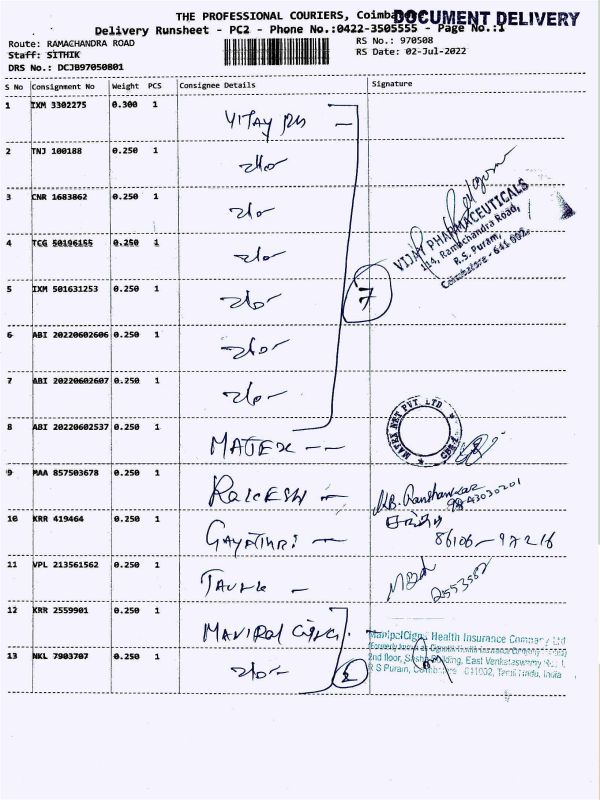 THE PROFESSIONAL COURIERS,
DOCUMENT DELIVERY
Delivery Runsheet - PC2 - Phone No.:0422-3505555 - Page No.:1
Route: RAMACHANDRA ROAD
RS No.: 970508
Staff: SITHIK
RS Date: 02-Jul-2022
DRS No.: DCJB97050801
S No Consignment No Weight PCS Consignee Details Signature
1 IXM 3302275 0.300 1
2 TNJ 100188 0.250 1
3 CNR 1683862 0.250 1
4 TCG 50196155 0.250 1
5 IXM 501631253 0.250 1
7
6 ABI 20220602606 0.250 1
7 ABI 20220602607 0.250 1
8 ABI 20220602537 0.250 1
9 MAA 857503678 0.250 1
10 KRR 419464 0.250 1
11 VPL 213561562 0.250 1
12 KRR 2559901 0.250 1
13 NKL 7903707 0.250 1
VIJAY PHARMACEUTICALS
114, Ramachandra Road,
R.S. Puram,
Coimbatore - 641 002.
MATRX NET PVT. LTD
RAKESH
9843030201
GAYATHRI
86106-97216
2553582
ManipalCigna Health Insurance Company Ltd
2nd floor, East Venkataswamy
R S Puram, Tamil Nadu, India